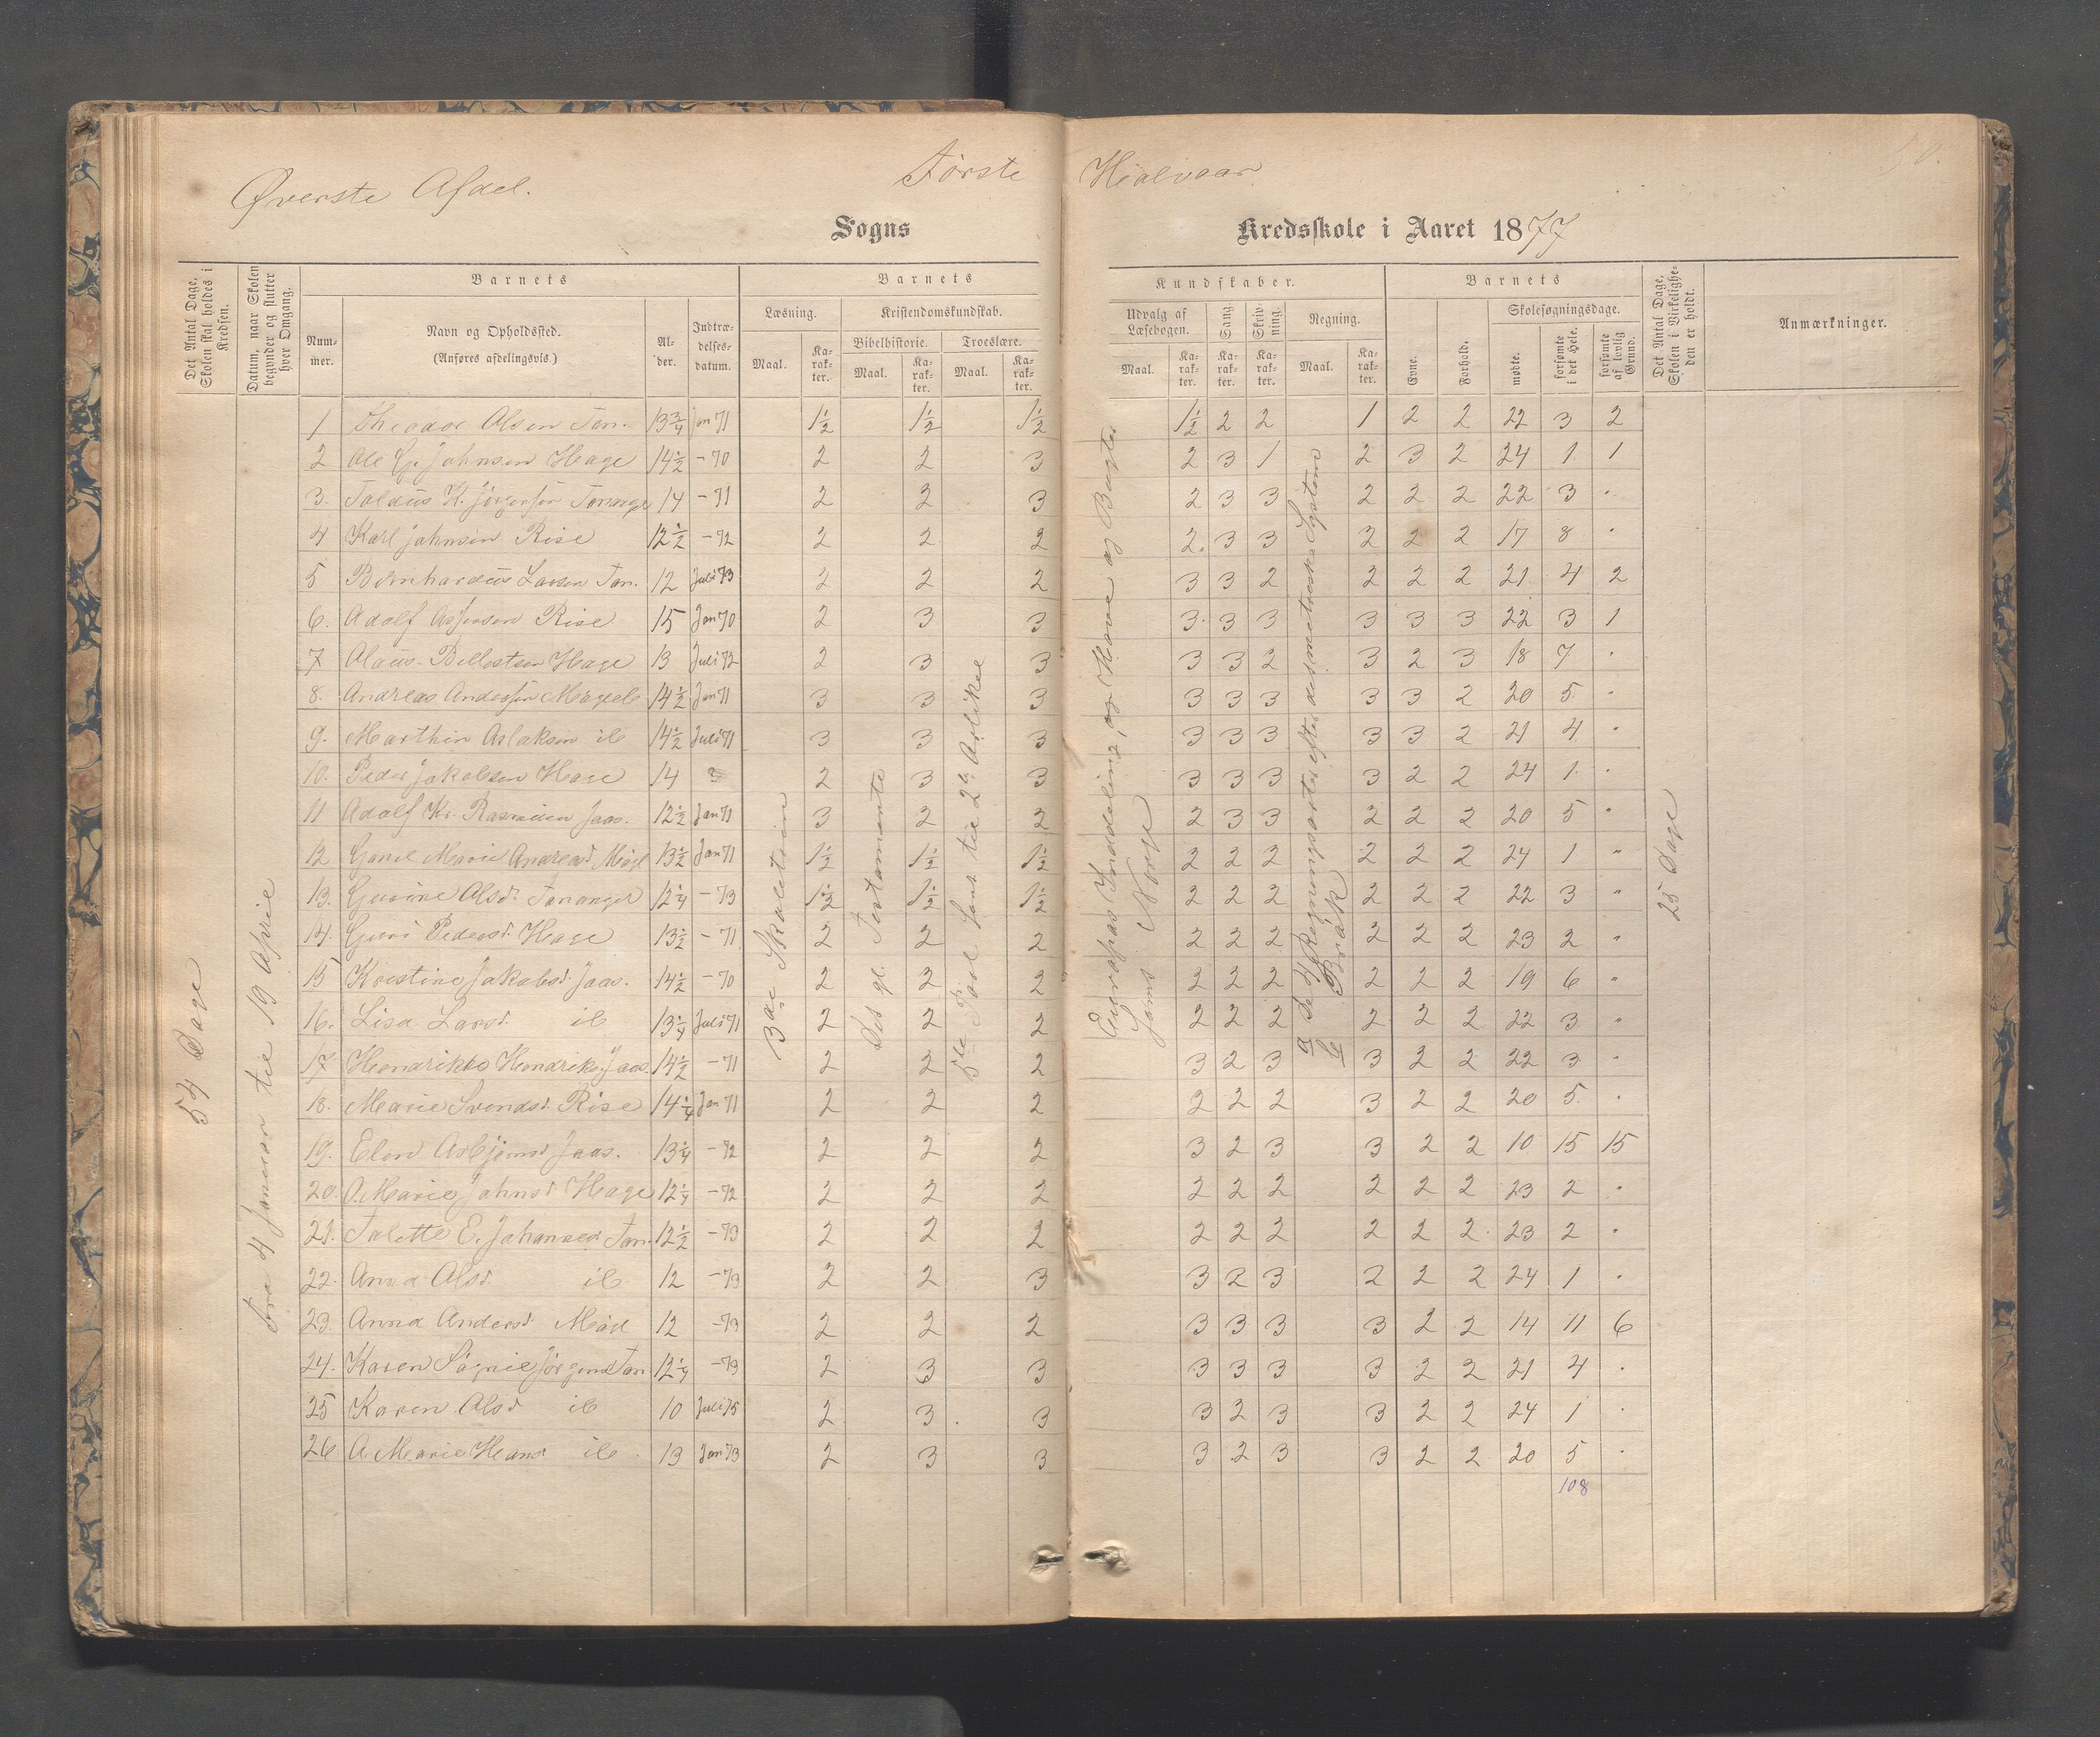 Øverste Afdel.
Første Halvaar
Sogns
Kredsskole i Aaret 1877
Det Antal Dage, Skolen skal holdes i Kredsen.
Datum, naar Skolen begynder og slutter hver Omgang.
Barnets
Barnets
Kundskaber.
Barnets
Det Antal Dage, Skolen i Virkeligheden er holdt.
Anmærkninger.
Nummer.
Navn og Opholdssted.
(Anføres afdelingsvis.)
Alder.
Indtrædelsesdatum.
Læsning.
Kristendomskundskab.
Bibelhistorie.
Troeslære.
Udvalg af Læsebogen.
Sang
Skrivning.
Regning.
Evne.
Forhold.
Skolesøgningsdage.
mødte.
forsømte i det Hele.
forsømte af lovlig Grund.
Maal.
Karakter.
Maal.
Karakter.
Maal.
Karakter.
Maal.
Karakter.
Karakter.
Karakter.
Maal.
Karakter.
54 Dage
fra 4 Januar til 19 April
Det gl. Testamente
Norge
25 Dage
1 Theodor Olsen Tan. 13 3/4 Jan 71 1 1/2 1 1/2 1 1/2 1 1/2 2 2 1 2 2 22 3 2
2 Ole G. Johnsen Hage 14 1/2 -70 2 2 3 2 3 1 2 3 2 24 1 1
3. K. Jörgensen Tananger 14 -71 2 2 3 2 3 3 2 2 2 22 3 .
4 Karl Johnsen Rise 12 1/2 -72 2 2 2 2 3 3 2 2 2 17 8 .
5 Bernhardus Larsen Tan. 12 Juli 73 2 2 2 3 3 2 2 2 2 21 4 2
6. Adolf Rise 15 Jan 70 2 3 3 3 3 3 3 3 3 22 3 1
7 Olaus Hage 13 Juli 72 2 3 3 3 3 2 3 2 3 18 7 .
8. Andreas Andersen 14 1/2 Jan 71 3 3 3 3 3 3 3 3 2 20 5 .
9. Marthin Aslaksen ib 14 1/2 Juli 71 3 3 3 3 3 3 3 3 2 21 4 .
10. Peder Jakobsen Hage 14 2 3 3 3 3 3 3 2 2 24 1 .
11 Adolf Kr. Rasmusen Jaas. 12 1/2 Jan 71 3 2 2 2 3 3 2 2 2 20 5 "
12 Marie Andreasd. 13 1/2 Jan 71 1 1/2 1 1/2 1 1/2 2 2 2 2 2 2 24 1 "
13. Gurine Olsd. Tananger 12 1/4 -73 1 1/2 1 1/2 1 1/2 2 2 2 2 2 2 22 3 "
14. Guri Pedersd. Hage 13 1/2 -71 2 2 2 2 2 2 2 2 2 23 2 "
15 Kristine Jakobsd. Jaas. 14 1/2 -70 2 2 2 2 2 2 2 2 2 19 6 "
16. Lisa Larsd. ib 13 1/4 Juli 71 2 2 2 2 2 2 2 2 2 22 3 "
17 Hendrikke Jaas. 14 1/2 -71 2 2 2 3 2 3 3 2 2 22 3 .
18. Marie Svendsd. Rise 14 1/4 Jan 71 2 2 2 2 2 2 3 2 2 20 5 .
19. Elen Asbjörnsd. Jaas. 13 1/4 -72 2 2 2 3 2 3 3 2 2 10 15 15
20. O. Marie Johnsd. Hage 12 1/4 -72 2 2 2 2 2 2 2 2 2 23 2 .
21. Talette E. Johannesd. Tan. 12 1/2 -73 2 2 2 2 2 2 2 2 2 23 2 .
22. Anna Olsd. ib 12 -73 2 2 3 3 2 3 2 2 2 24 1 .
23. Anna Andersd. 12 -73 2 2 2 3 3 3 3 2 2 14 11 6
24. Karen Jörgensd. Tan. 12 1/4 -73 2 3 3 3 3 3 3 2 2 21 4 .
25 Karen Olsd. ib 10 Juli 75 2 3 3 3 2 3 3 2 2 24 1 .
26 A. Marie Hansd. ib 13 Jan 73 2 3 3 3 2 3 3 2 2 20 5 .
108